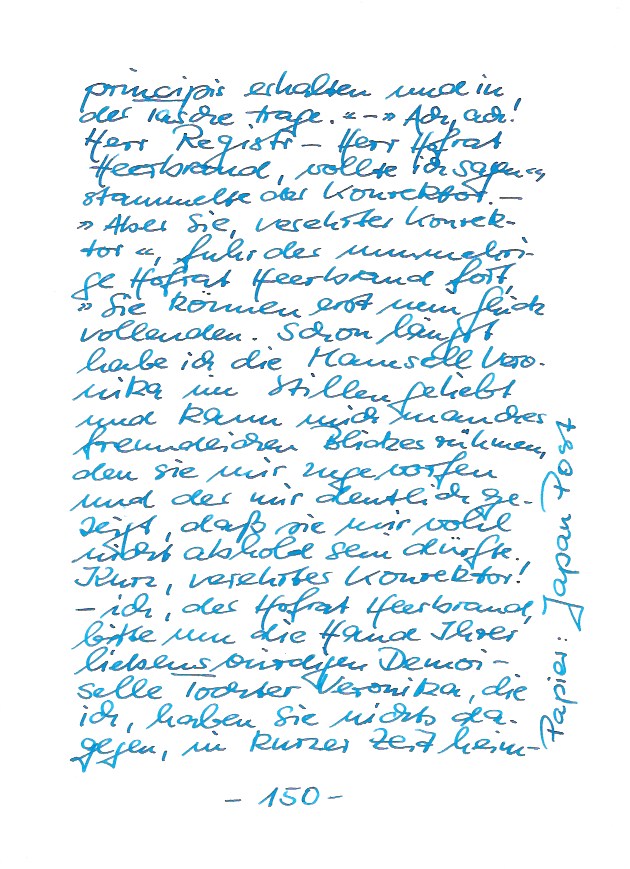 principis erhalten und in
der Tasche trage.“ – » Ach, ach!
Herr Registr – Herr Hofrat
Heerbrand, wollte ich sagen“,
stammelte der Konrektor. –
» Aber Sie, verehrter Konrek-
tor “, fuhr der nunmehri-
ge Hofrat Heerbrand fort,
» Sie können erst mein Glück
vollenden. Schon längst
habe ich die Mamsell Vero-
nika im Stillen geliebt
und kann mich manches
freundlichen Blickes rühmen,
den sie mir zugeworfen
und der mir deutlich ge-
zeigt, daß sie mir wohl
nicht abhold sein dürfte.
Kurz, verehrter Konrektor!
– ich, der Hofrat Heerbrand,
bitte um die Hand Ihrer
liebenswürdigen Demoi-
selle Tochter Veronika, die
ich, haben Sie nichts da-
gegen, in kurzer Zeit heim-
– 150 –
Papier: Japan Post